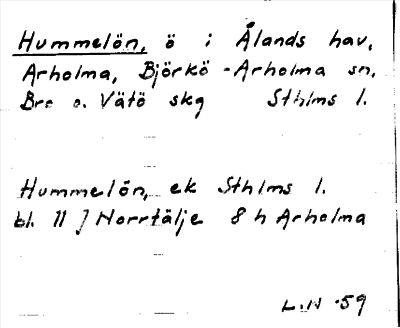 Hummelön, ö i Ålands hav,
Arholma, Björkö-Arholma sn,
Bro o. Vätö skg Sthlms l.
Hummelön, ek Sthlms l.
bl. 11 J Norrtälje 8 h Arholma
L.N -59